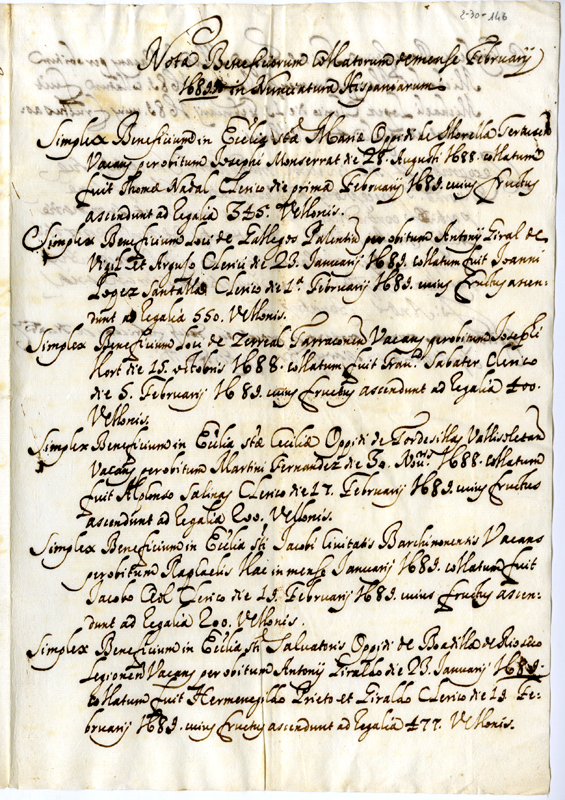 2-30-146
Nota Beneficiorum collatorum de mense Februarij
1689 in Nunciatura Hispaniarum
Simplex Beneficium in Ecclia Stæ Mariæ Oppidi de Morella
Vacans per obitum Josephi Monserrat die 28. Augusti 1688. collatum
fuit Thomæ Nadal Clerico die prima Februarij 1689. cuius fructus
ascendunt ad Regalia 345. Vellonis.
Simplex Beneficium Loci de Gallegos Palentin per obitum Antonij Giral de
Vigil et Clerici die 23. Januarij 1689. collatum fuit Joanni
Lopez Santalla Clerico die 1ª Februarij 1689. cuius fructus ascen-
dunt ad Regalia 550. Vellonis.
Simplex Beneficium Loci de Tarraconen Vacans per obitum Josephi
Hort die 15. octobris 1688. collatum fuit Franco Sabater Clerico
die 5. Februarij 1689. cuius fructus ascendunt ad regalia 400.
Vellonis.
Simplex Beneficium in Ecclia Stæ Ceciliæ Oppidi de Tordesillas Vallisoletan
Vacans per obitum Martini Fernandez die 30. Nouris 1688. collatum
fuit Alphonso Salinas Clerico die 17. Februarij 1689. cuius fructus
ascendunt ad Regalia 200. Vellonis.
Simplex Beneficium in Ecclia Sti Jacobi Civitatis Barchinonensis Vacans
per obitum Raphaelis in mense Januarij 1689. collatum fuit
Jacobo Clerico die 19. Februarij 1689. cuius fructus ascen-
dunt ad Regalia 200. Vellonis.
Simplex Beneficium in Ecclia Sti Salvatoris Oppidi de Boadilla de Rioseco
Legionen Vacans per obitum Antonij Giraldo die 23. Januarij 1689.
collatum fuit Hermenegildo Prieto et Giraldo Clerico die 19 Fe-
bruarij 1689. cuius fructus ascendunt ad regalia 477. Vellonis.